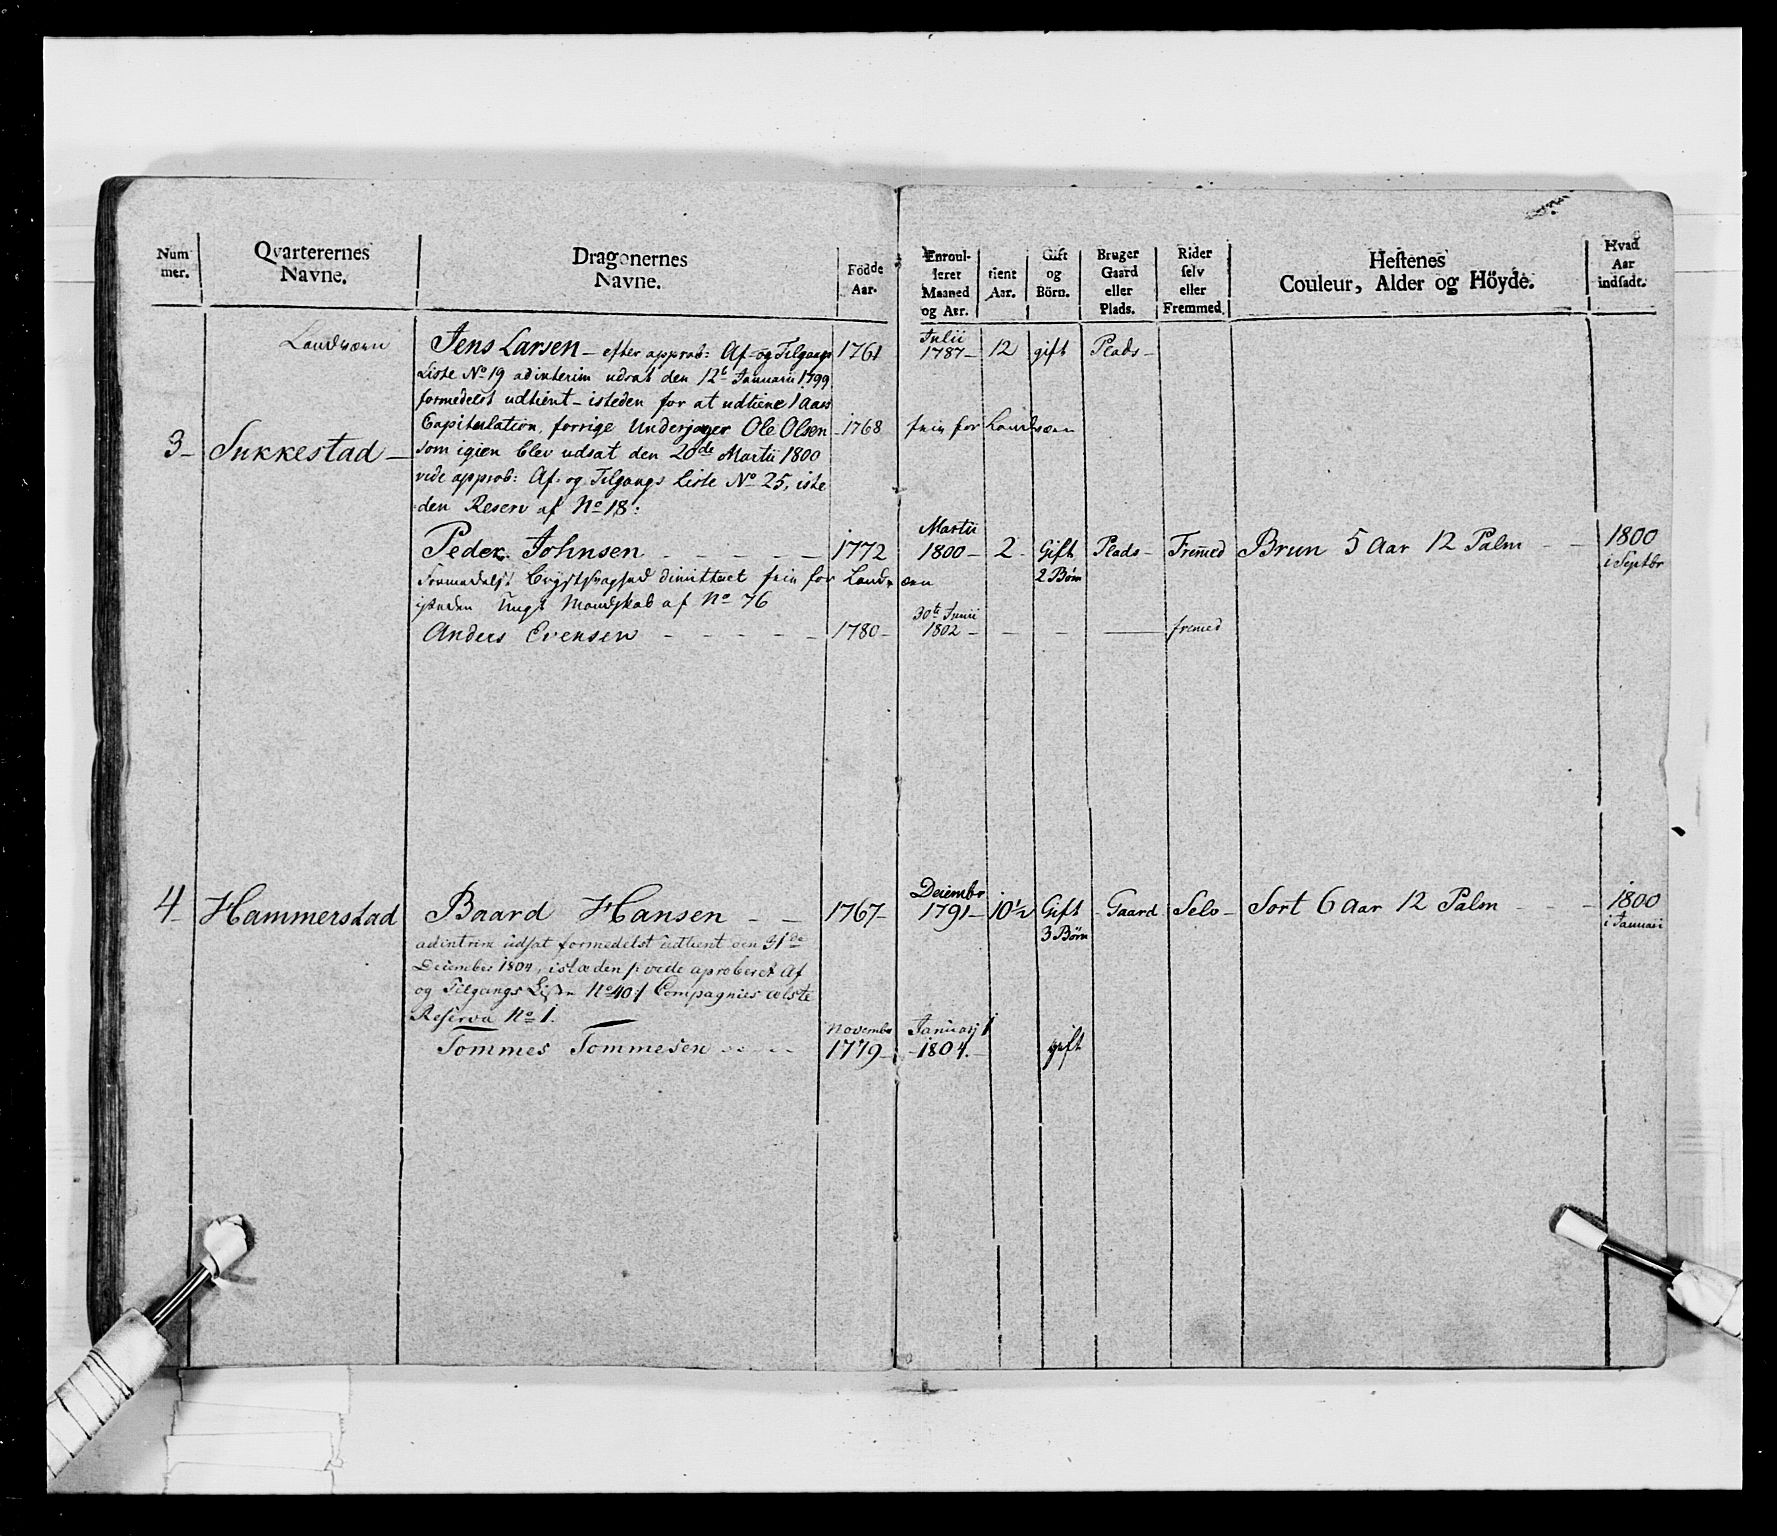 Num mer. Qvarterernes Navne. Dragonernes Navne. Födde Aar. Enroulleret Maaned og Aar. tient Aar. Gift og Börn. Bruger Gaard eller Plads. Rider selv eller Fremmed. Hestenes Couleur, Alder og Höyde. Hvad Aar indsadt.
Landværn Jens Larsen – efter approb: Af- og Tilgangs 1761 Julii 1787 – 12 gift Plads –
Liste No 19 adinterim udsat den 12t Januarii 1799
formedelst udtient – isteden for at udtiene 1 Aars
Capitulation, forrige Underjæger Ole Olsen – 1768 frie for Landværn
3 – Sukkestad – som igien blev udsat den 20de Martii 1800
vide approb: Af- og Tilgangs Liste No 25, iste
den Reserv af No 18:
Peder Johnsen – – – – 1772 Martii 1800 – 2 – Gift 2 Börn Plads – Fremed Brun 5 Aar 12 Palm – – 1800 i Septbr
Formedelst Brystsvaghed dimitteret frie for Landværn
isteden Ungt Mandskab af No 76
Anders Evensen – – – – – 1780 – 30te Junii 1802 – – – — fremed
4 – Hammerstad Baard Hansen – – 1767 – Decembr 1791 – 10½ Gift 3 Börn – Gaard Selv – Sort 6 Aar 12 Palm – – – 1800 i Januari
adintrim udsat formedelst udtient den 31de
December 1804, istæden /: vide aproberet Af
og Tilgangs Liste No 40 :/ Compagnies ælste
Reserva No 1.
Tommes Tommesen – – – – Novembr 1779 – Januarj 1804 – gift